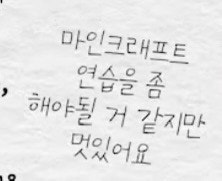 마인크래프트
연습을 좀
해야될 거 같지만
멋있어요